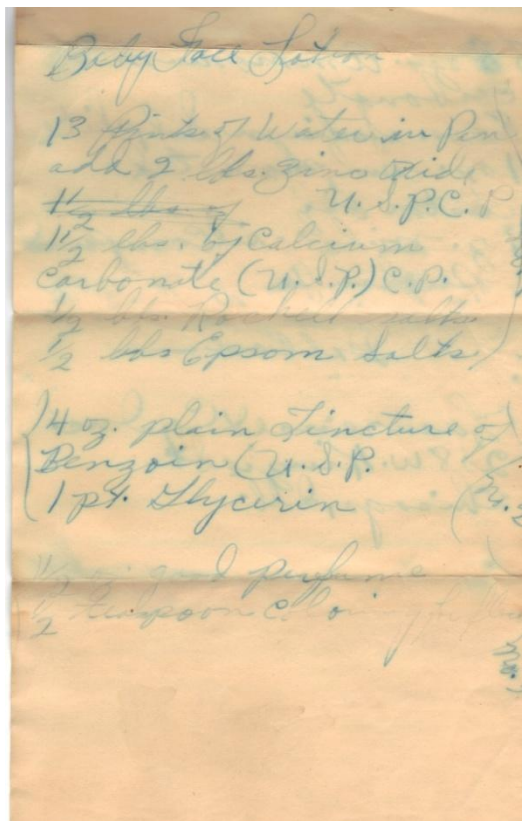 Baby Face Lotion
13 Pints of Water in Pan
add 2 lbs. zinc oxide
1 1/2 lbs of U.S.P.C.P
1 1/2 lbs. of Calcium
Carbonate (U.S.P.) C.P.
1/2 lbs. Rochell salts
1/2 lbs Epsom Salts
4 oz. plain Tincture of
Benzoin (U.S.P.
1 pt. Glycerin
1 1/2 oz good perfume
1/2 teaspoon coloring